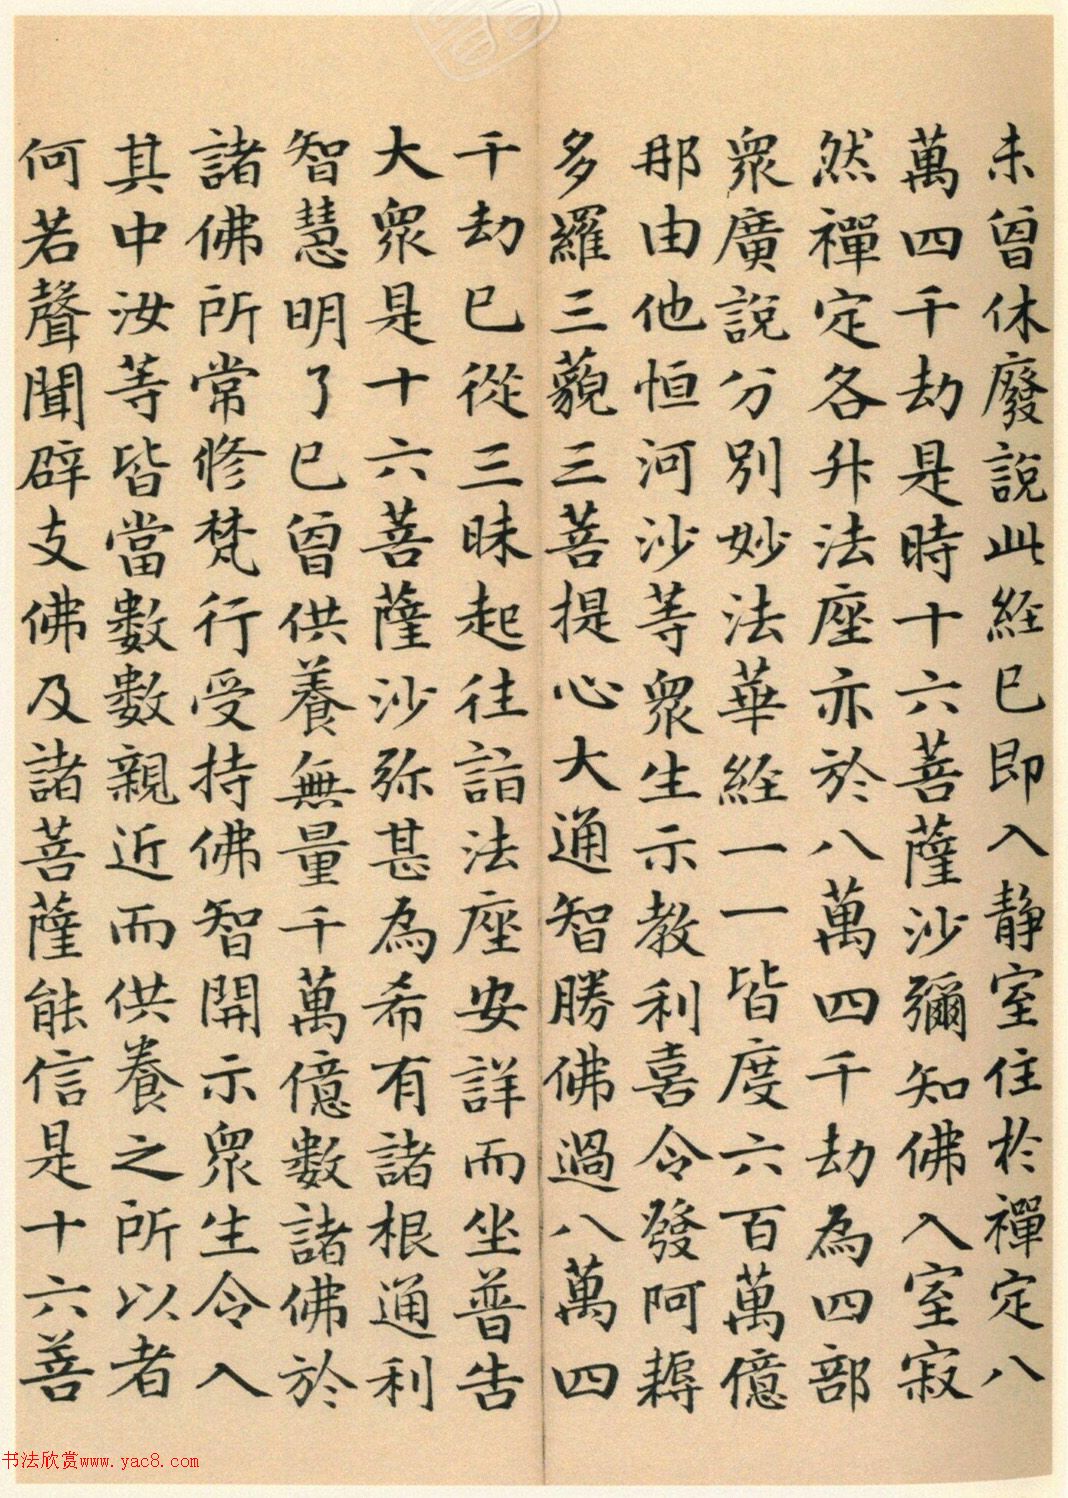 未曾休廢說此經已即入静室住於禪定八
萬四千劫是時十六菩薩沙彌知佛入室寂
然禪定各升法座亦於八萬四千劫為四部
眾廣說分別妙法華經一一皆度六百萬億
那由他恒河沙等眾生示教利喜令發阿耨
多羅三藐三菩提心大通智勝佛過八萬四
千劫已從三昧起往詣法座安詳而坐普告
大眾是十六菩薩沙弥甚為希有諸根通利
智慧明了已曾供養無量千萬億數諸佛於
諸佛所常修梵行受持佛智開示眾生令入
其中汝等皆當數數親近而供養之所以者
何若聲聞辟支佛及諸菩薩能信是十六菩
书法欣赏www.yac8.com